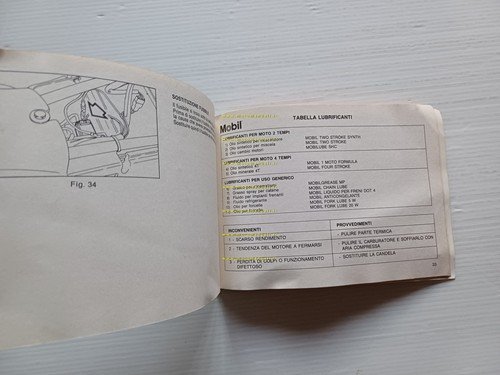 SOSTITUZIONE
Fig. 34
Mobil
TABELLA LUBRIFICANTI
LUBRIFICANTI PER MOTO 2 TEMPI
1) Olio sintetico per miscelatore MOBIL TWO STROKE SYNTH
2) Olio sintetico per miscela MOBIL TWO STROKE
3) Olio cambio motori MOBILUBE SHC
LUBRIFICANTI PER MOTO 4 TEMPI
Olio sintetico 4T MOBIL 1 MOTO FORMULA
Olio minerale 4T MOBIL FOUR STROKE
LUBRIFICANTI PER USO GENERICO
Grasso per MOBILGREASE MP
Grasso spray per catene MOBIL CHAIN LUBE
Fluido per impianti frenanti MOBIL LIQUIDO PER FRENI DOT 4
Fluido refrigerante MOBIL ANTICONGELANTE
Olio per forcelle MOBIL FORK LUBE 5 W
Olio per forcelle MOBIL FORK LUBE 20 W
INCONVENIENTI PROVVEDIMENTI
1 - SCARSO RENDIMENTO - PULIRE PARTE TERMICA
2 - TENDENZA DEL MOTORE A FERMARSI - PULIRE IL CARBURATORE E SOFFIARLO CON
ARIA COMPRESSA
3 - PERDITA DI COLPI O FUNZIONAMENTO - SOSTITUIRE LA CANDELA
DIFETTOSO
23